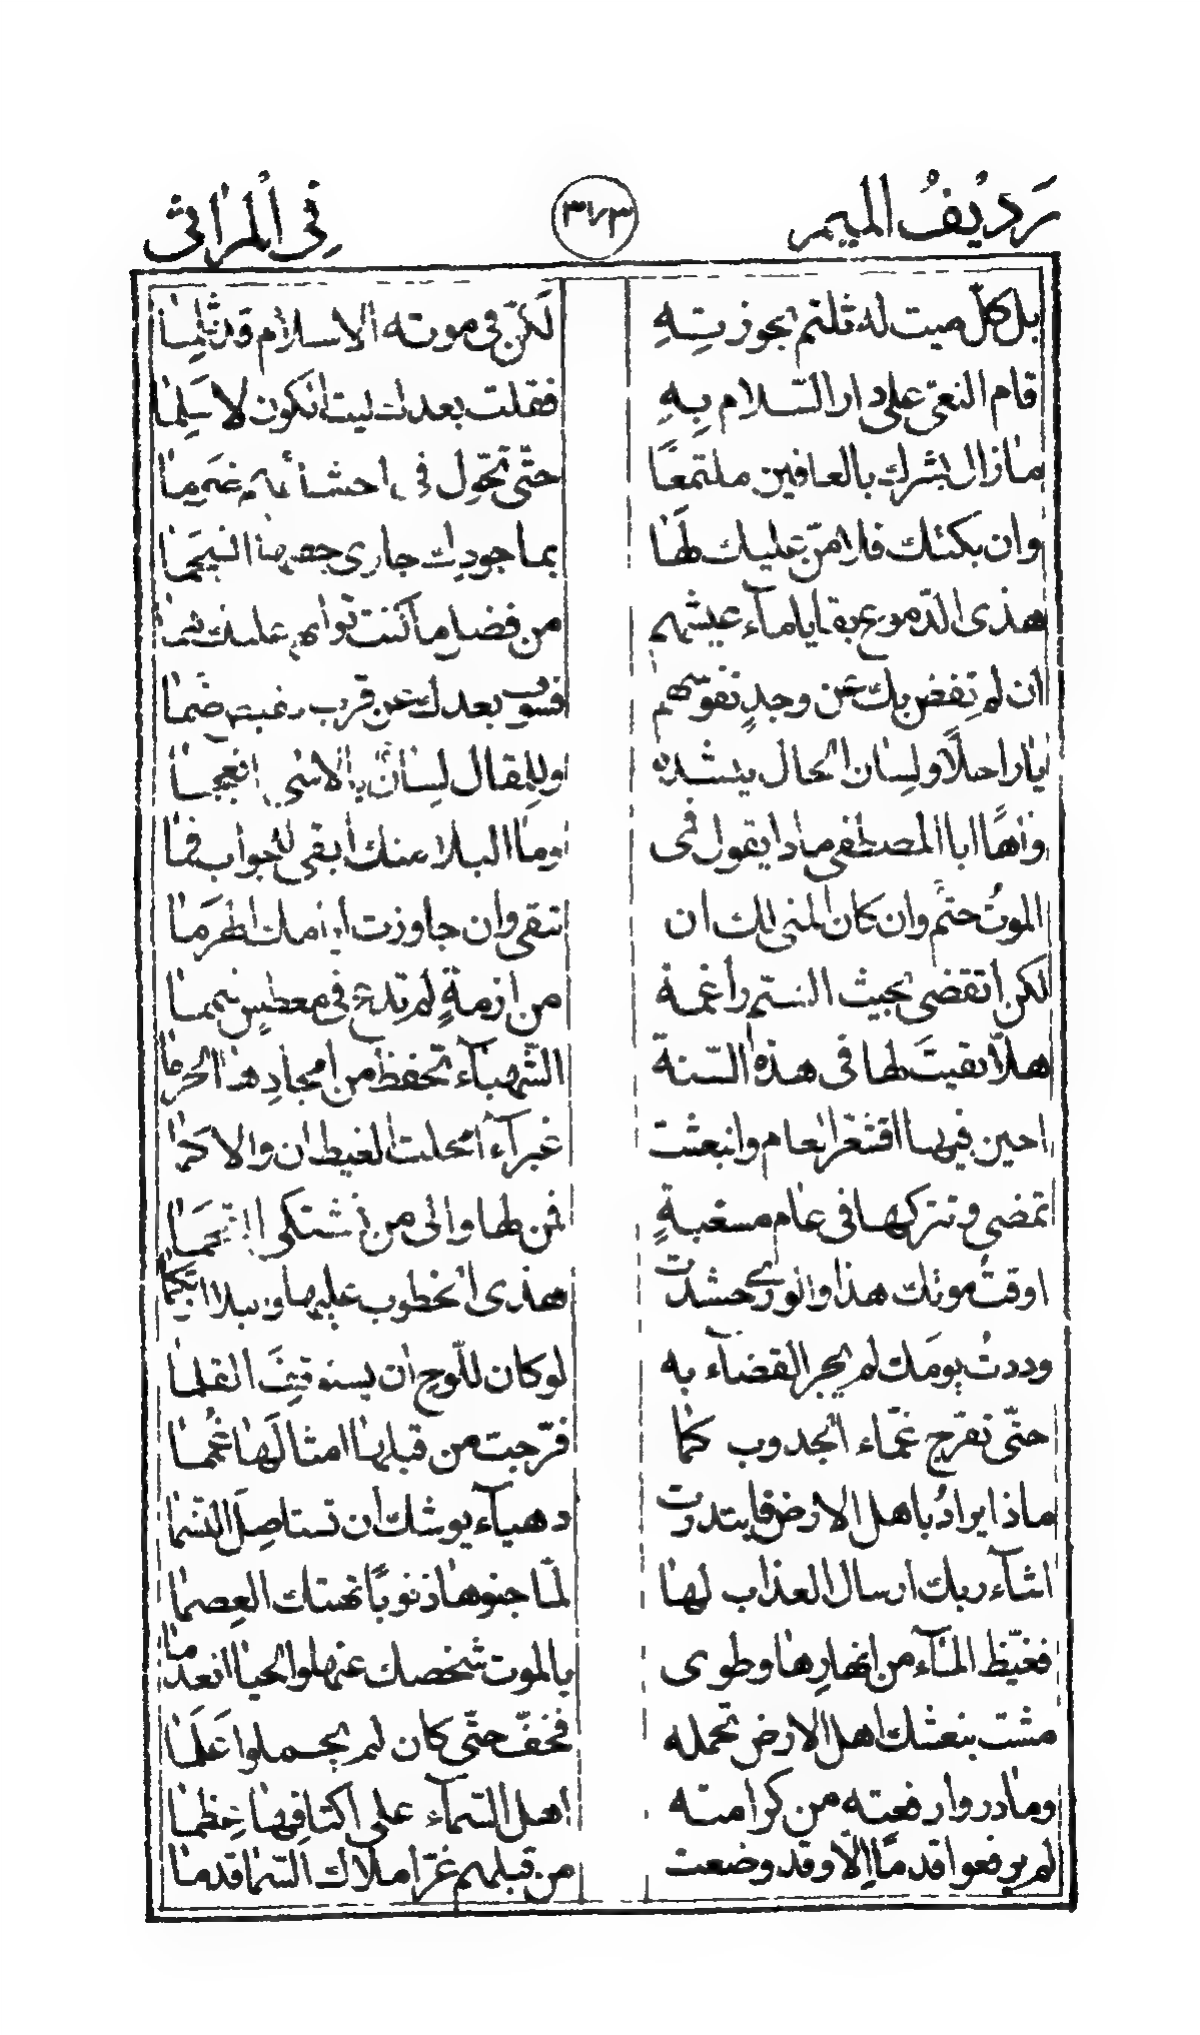 رَديفُ الميم ٣١٣ فِي الْمَرٰاثى
بل كلّ ميت له ثلم بجوزتِهِ لكنّ فى موته الاسلام قد ثلِمٰا
قام النعىّ على دار السّلام بِهِ فقلت بعدك ليت الكون لا سَلِمٰا
مٰا زال بشرك بالعافين ملتمعًا حتّى تحوّل فى احشائهم غمَمٰا
وان بكتك فلا منّ عليك لهٰا بمٰا جودك جارى النعمٰا
هذى الدّموع بقايا مآء عيشهم من فضل مٰا كنت توليهم عليك همٰا
ان لم تفض بك عن وجدٍ نفوسهم فسوف بعدك عن قرب تفيض ضمٰا
يٰا راحلًا ولسٰان الحال ينشده وللمقال لسٰانٌ بالاسى انعجمٰا
وٰاهًا ابا المصطفى مٰاذا يقول فمى ومٰا البلا منك ابقى للجواب فمٰا
الموتُ حتمٌ وان كان المنى لك ان تبقى وان جاوزت ايّامك الهرَمٰا
لكن اتقضى بحيث الستّ راغمة من ازمةٍ لم تدع فى معطسٍ شممٰا
هلّا بقيتَ لها فى هذه السّنة الشّهبآء تحفظ من امجادِ هذا الحرمٰا
احين فيها اقشعرّ العام وانبعثت غبرآء امحلت الغيطان والاكمٰا
تمضى وتتركها فى عٰام مسغبةٍ فمن لها والى من تشتكى
اوقتُ موتك هذا والورى حشدت هذى الخطوب عليها والبلا ارتكمٰا
وددتُ يومَك لم يجر القضآء به لو كان للّوح ان يستوقفَ القلمٰا
حتّى تفرّج غمّاء الجدوب كمٰا فرّجت من قبلهٰا امثالَهٰا غُممٰا
ماذا ايرادُ باهل الارض فابتدرت دهيآء يوشك ان تستاصِلَ النّسمٰا
اشآء ربك ارسال العذاب لهٰا لمّا جنوهٰا ذنوبًا تهتك العِصمٰا
فغيّظ المٰآء من انهارِهٰا وطوى بالموت شخصك عنهٰا والحيٰا انعدمٰا
مشت بنعشك اهل الارض تحمله فخفّ حتّى كان لم يحملوا عَلَمٰا
ومٰادروا رفعته من كرامته اهل السّمآء على اكتافِهٰا عِظمٰا
لم يرفعوا قدمًا الّا وقد وضعت من قبلهم غرّ املاك السّمٰا قدمٰا